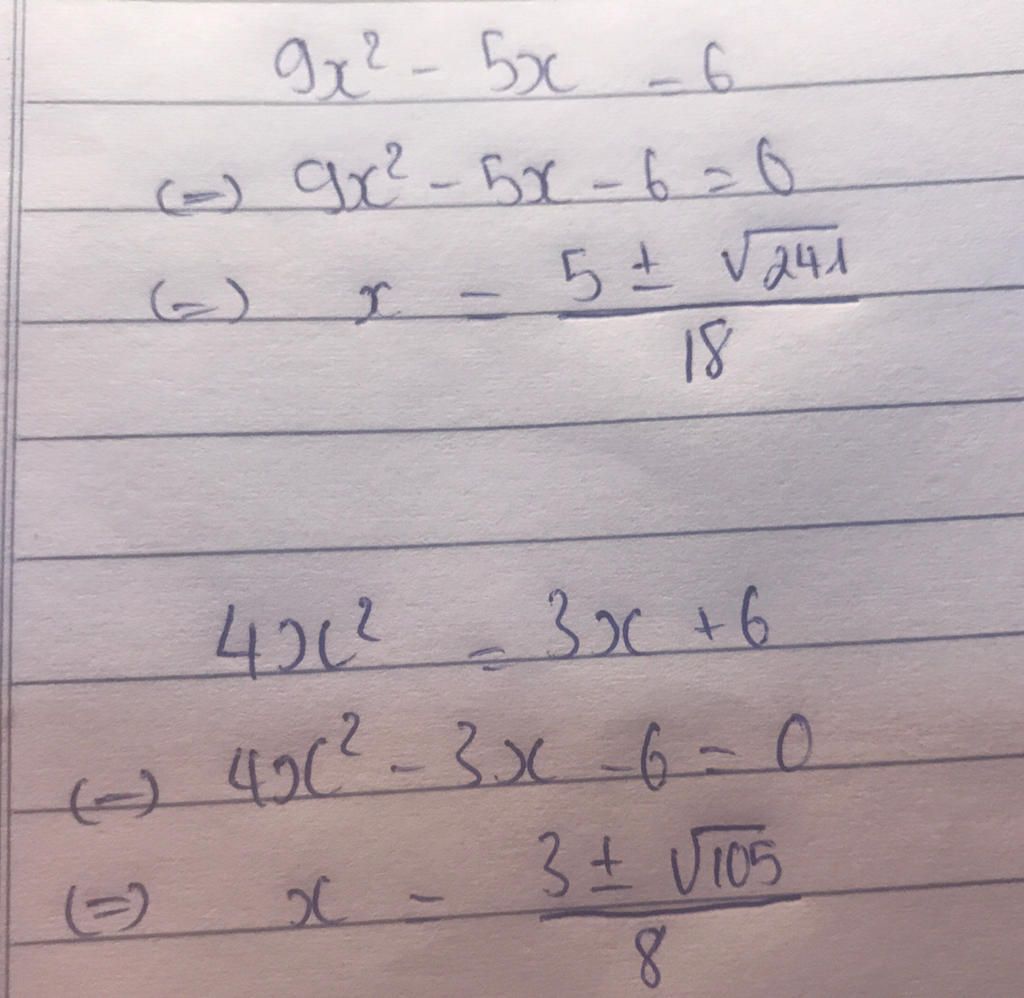 9x² - 5x = 6
(=) 9x² - 5x - 6 = 0
(=) x = (5 ± √241)/18
4x² = 3x + 6
(=) 4x² - 3x - 6 = 0
(=) x = (3 ± √105)/8